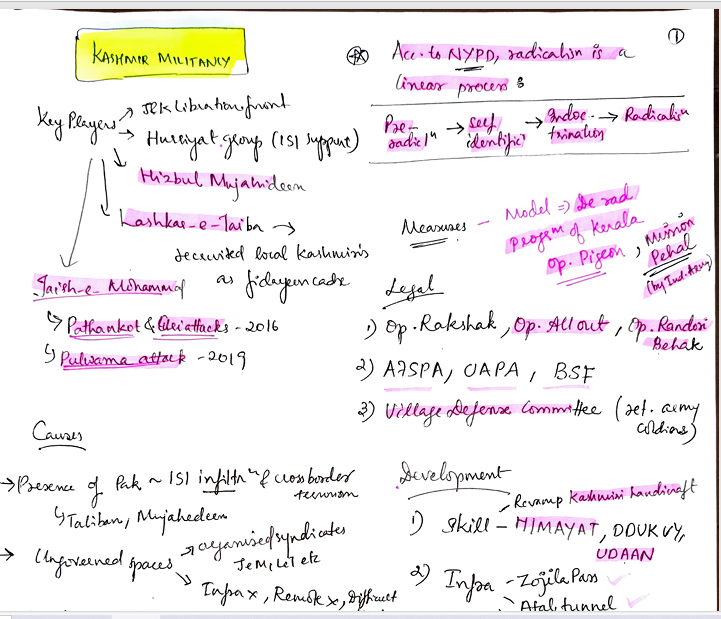 KASHMIR MILITANCY
Key Players → J&K Libration front
→ Hurriyat group (ISI support)
Hizbul Mujahideen
Lashkar-e-Taiba →
recruited local Kashmiris
as fidayeen cadre
Jaish-e-Mohammad
↳ Pathankot & Uri attacks - 2016
↳ Pulwama attack - 2019
Causes
→ Presence of Pak ~ ISI infiltrⁿ & cross border
terrorism
↳ Taliban, Mujahedeen
→ Ungoverned spaces → organised syndicates
JeM, LeT etc
Infra x, Remote x, Difficult
①
Acc. to NYPD, radicalisn is a
linear process :
Pre-radiclⁿ → self identificⁿ → Indoctrination → Radicalisn
Measures - Model ⇒ De rad
progrm of Kerala
Op. Pigeon, Mission
Pehal
(by Ind. Army)
Legal
1) Op. Rakshak, Op. All out, Op. Randori
Behak
2) AFSPA, UAPA, BSF
3) Village Defense Committee (ret. army
soldiers)
Development
Revamp Kashmiri handicraft
1) Skill - HIMAYAT, DDUKVY,
UDAAN
2) Infra - Zojila Pass
Atal tunnel